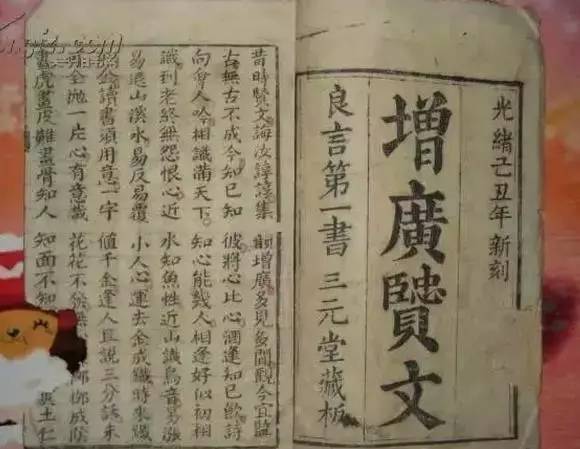 光緒己丑年新刻
增廣贒文
良言第一書 三元堂藏板
昔時賢文誨汝諄諄集韻增廣多見多聞觀今宜鑒
古無古不成今知已知彼將心比心酒逢知已飲詩
向會人吟相識滿天下知心能幾人相逢好似初相
識到老終無怨恨心近水知魚性近山識鳥音易漲
易退山溪水易反易覆小人心運去金成鐵時來鐵
金讀書須用意一字值千金逢人且說三分話未
全拋一片心有意栽花花不發無
畫虎畫皮難畫骨知人知面不知